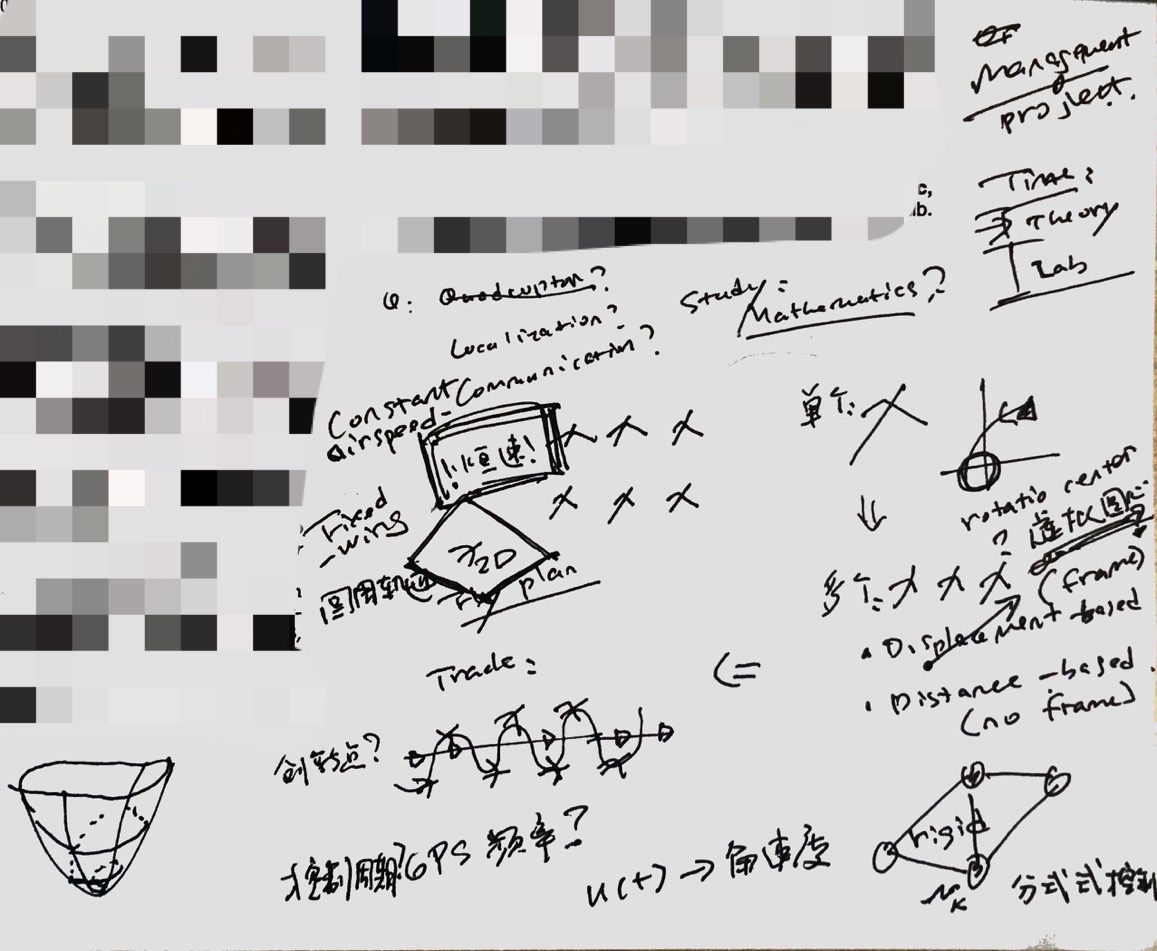 Management
project.
c,
b.
Time:
Theory
Lab
Q: Quadcuptor?
Localization?
Communication?
Study:
Mathematics?
Constant
airspeed-
恒速!
Fixed
-wing
圆周轨迹
2D
plan
单个:
rotatio center
? 虚拟圆心
多个:
(frame)
• Displacement-based
• Distance-based.
(no frame)
Track:
创新点?
控制周期? GPS 频率?
u(t) → 角速度
rigid
分式式控制